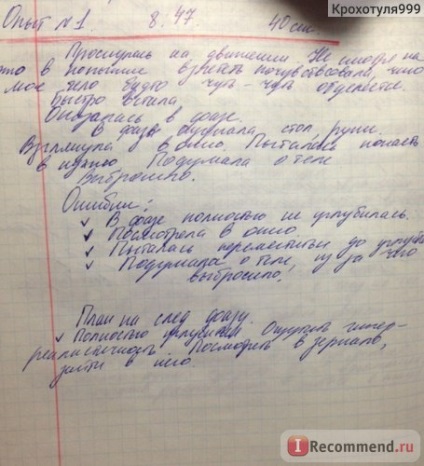 Крохотуля999
Опыт №1. 8.47 40 сек
Проснулась на движении. Не смотря на
это в попытке взлететь почувствовала, что
мое тело будто чуть-чуть отделяется.
Быстро встала,
Оказалась в фазе.
В фазе ощупала стол, руки.
Взглянула в окно. Пыталась попасть
в Подумала о теле
Выбросило.
Ошибки:
✓ В фазе полностью не углубилась.
✓ Посмотрела в окно
✓ Пыталась переместиться до углубл
✓ Подумала о теле, из за чего
выбросило!
План на след фазу.
✓ Полностью углубиться Ощутить гипер-
реалистичность. Посмотреть в зеркало,
зайти в него.
iRecommend.ru